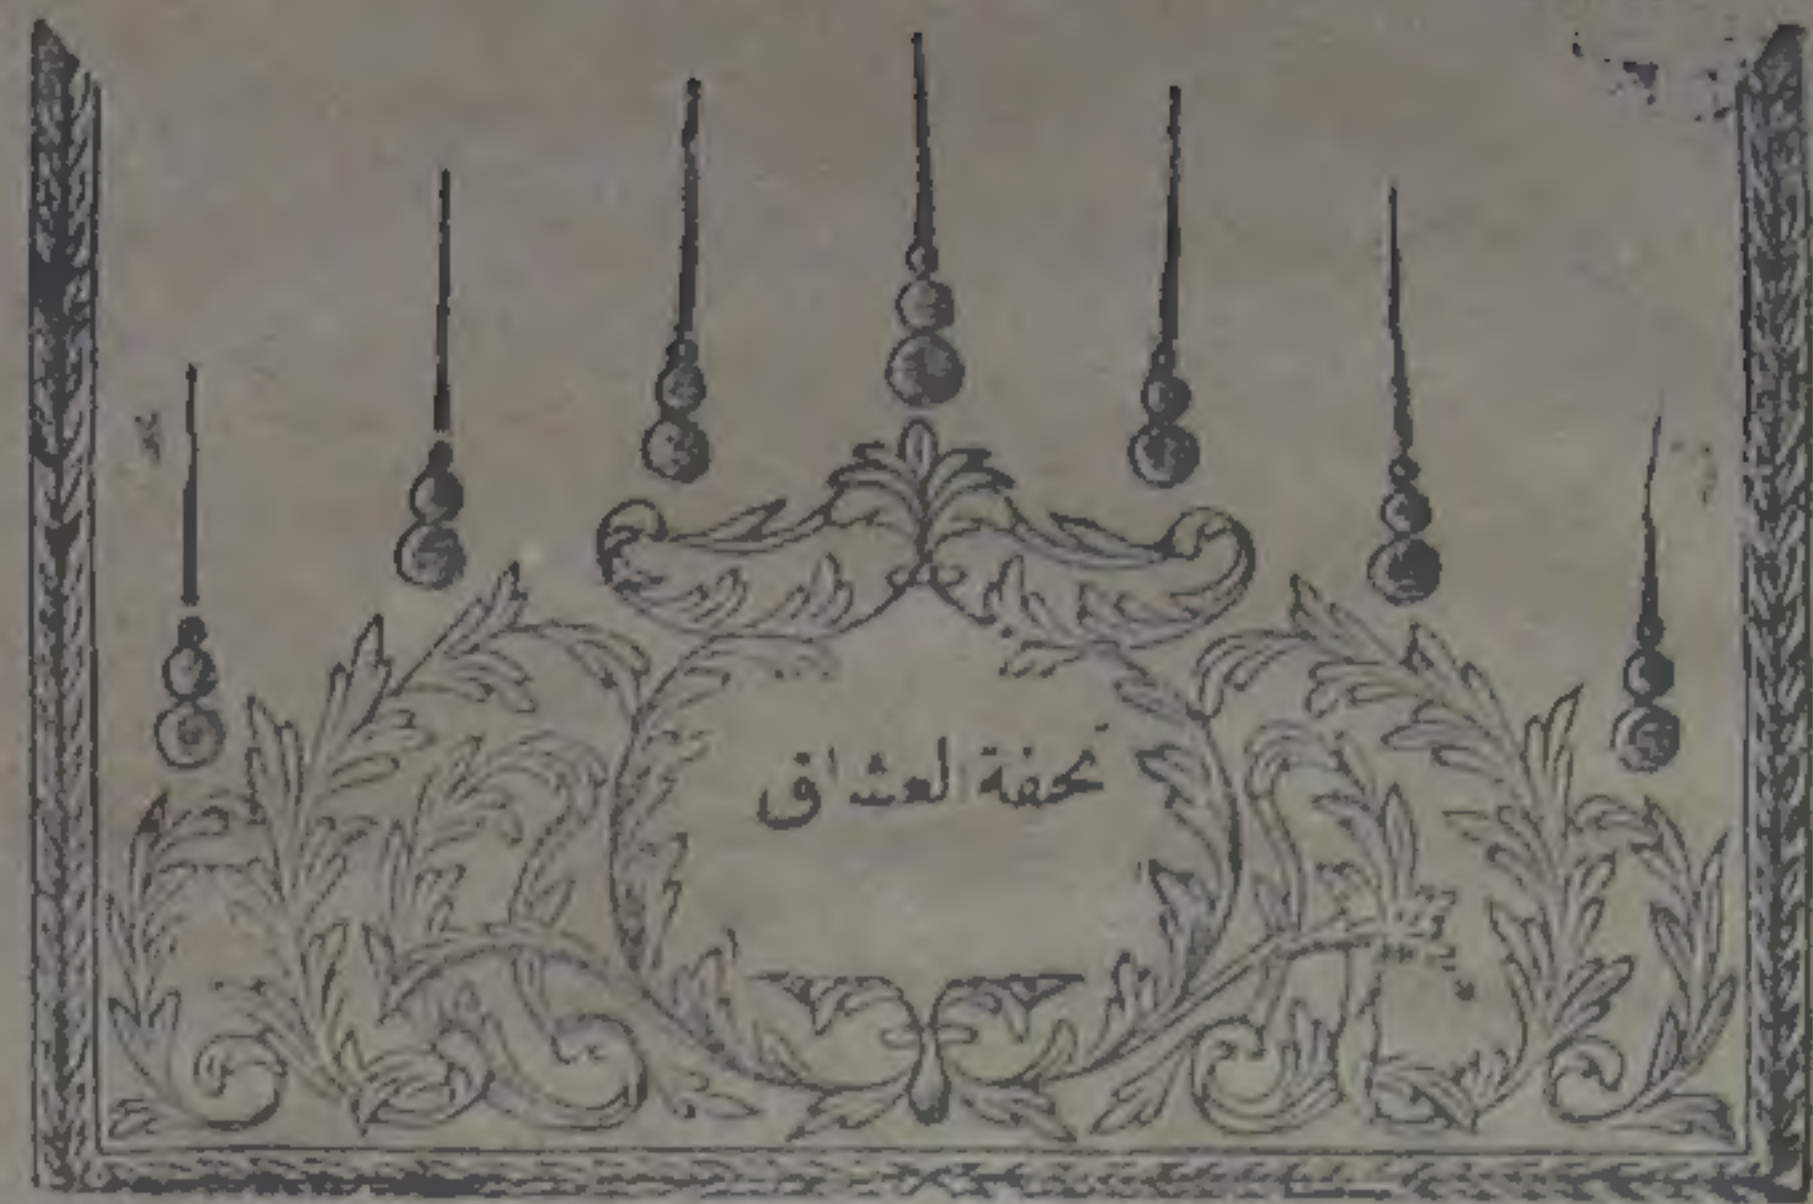 تحفة العشاق